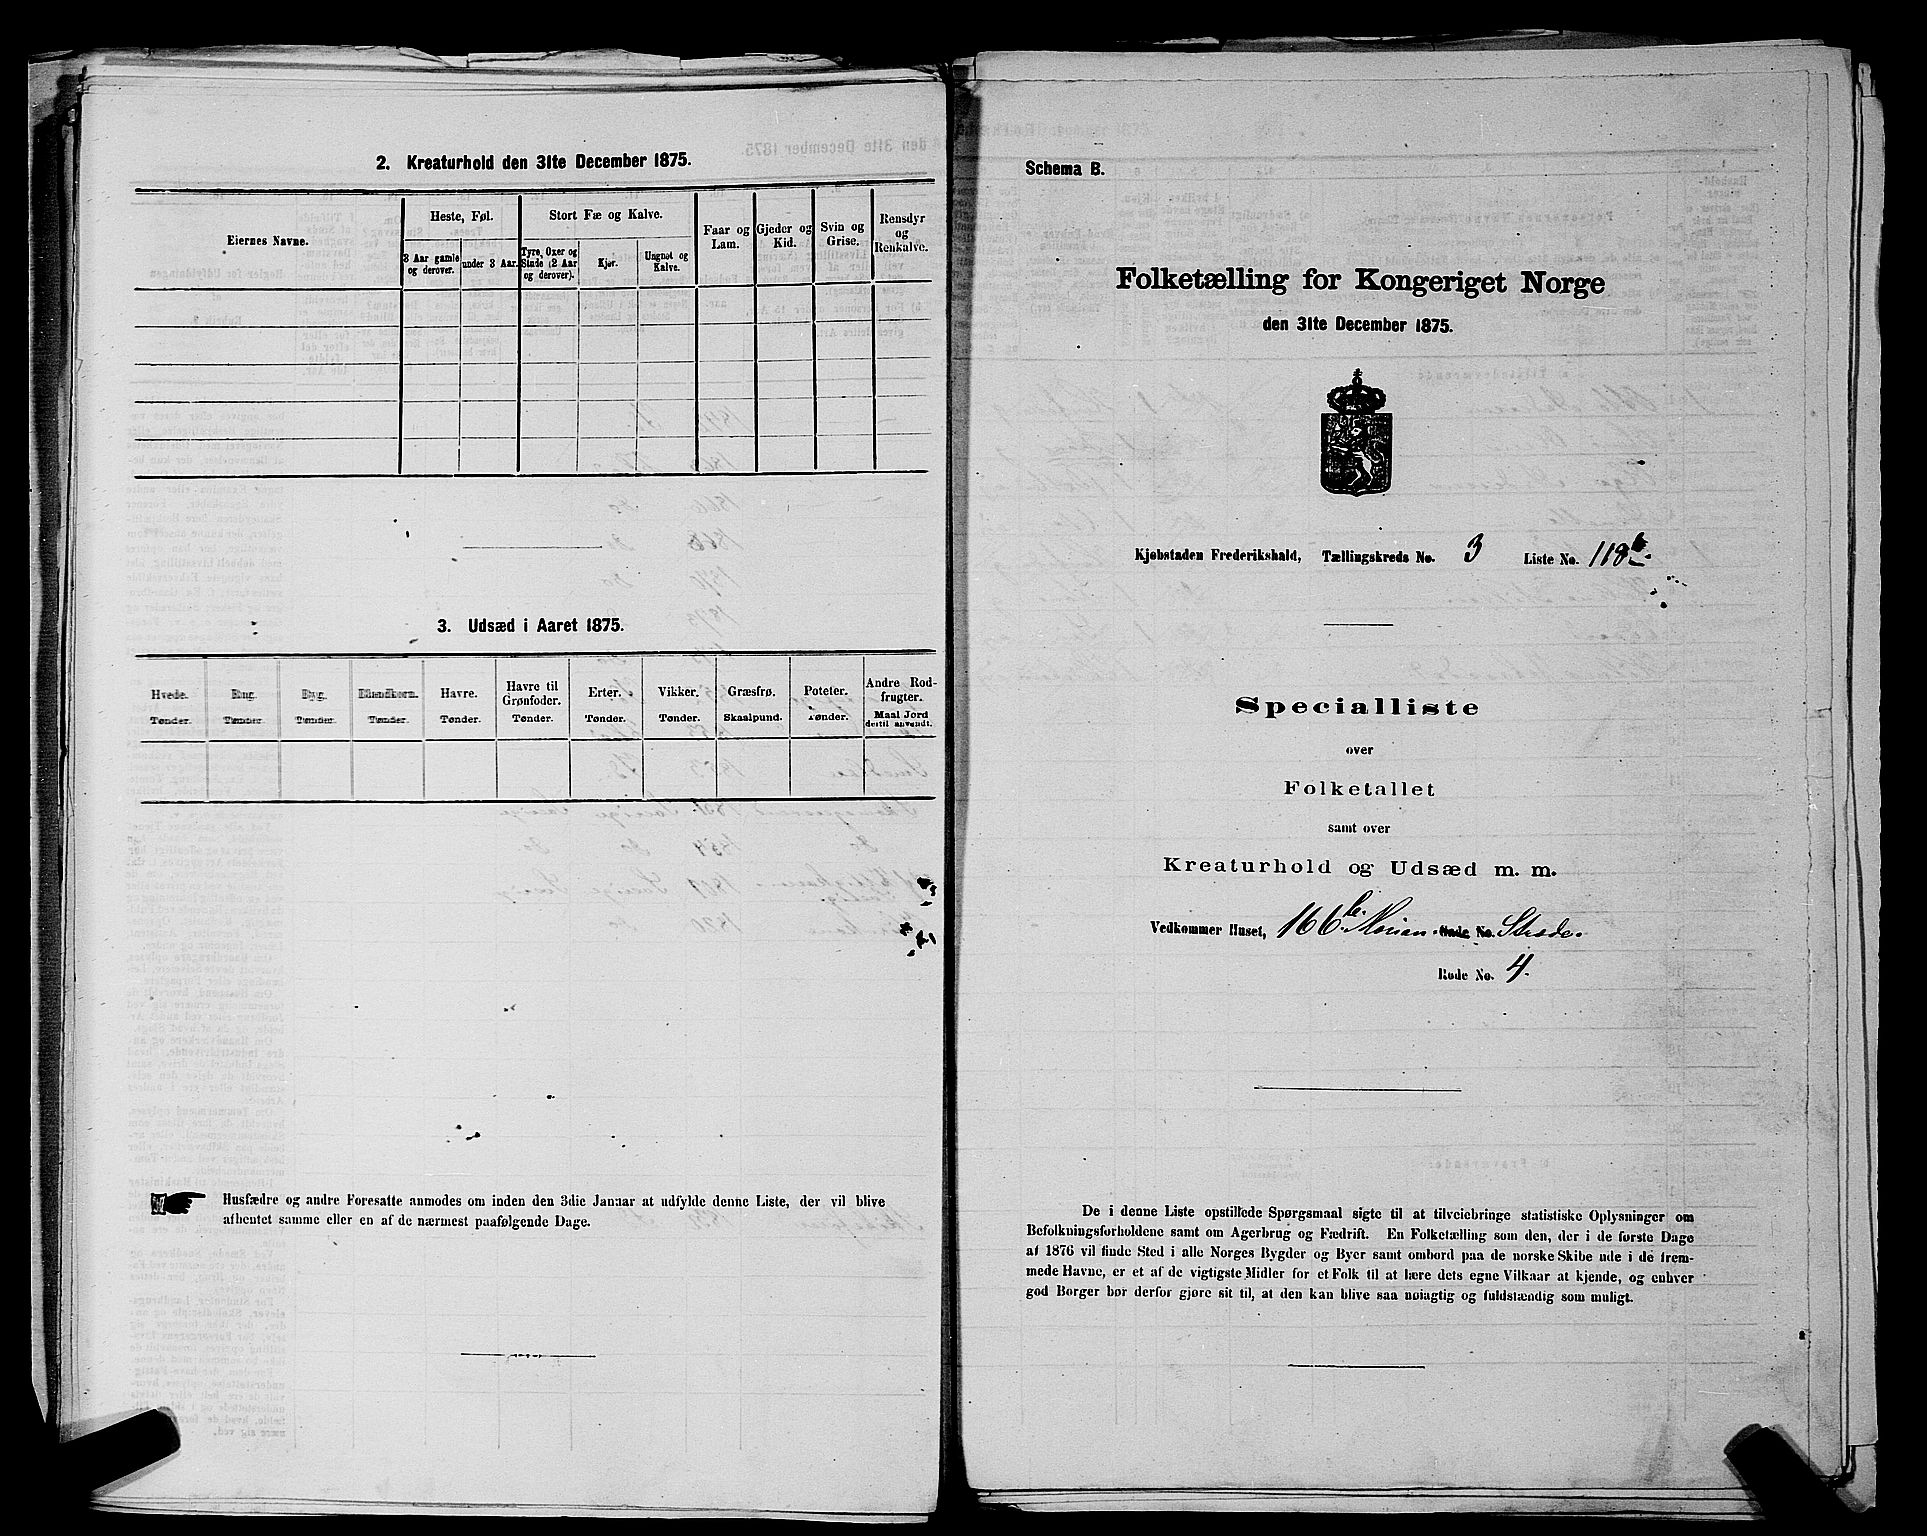 2. Kreaturhold den 31te December 1875.
Eiernes Navne.
Heste, Føl.
3 Aar gamle og derover.
under 3 Aar.
Stort Fæ og Kalve.
Tyre, Oxer og Stude (2 Aar og derover).
Kjør.
Ungnøt og Kalve.
Faar og Lam.
Gjeder og Kid.
Svin og Grise.
Rensdyr og Renkalve.
3. Udsæd i Aaret 1875.
Hvede. Tønder.
Rug. Tønder.
Byg. Tønder.
Blandkorn. Tønder.
Havre. Tønder.
Havre til Grønfoder. Tønder.
Erter. Tønder.
Vikker. Tønder.
Græsfrø. Skaalpund.
Poteter. Tønder.
Andre Rodfrugter. Maal Jord dertil anvendt.
Husfædre og andre Foresatte anmodes om inden den 3die Januar at udfylde denne Liste, der vil blive
afhentet samme eller en af de nærmest paafølgende Dage.
Schema B.
Folketælling for Kongeriget Norge
den 31te December 1875.
Kjøbstaden Frederikshald, Tællingskreds No. 3 Liste No. 118b
Specialliste
over
Folketallet
samt over
Kreaturhold og Udsæd m. m.
Vedkommer Huset, 166b. Gade No. Stræde.
Rode No. 4.
De i denne Liste opstillede Spørgsmaal sigte til at tilveiebringe statistiske Oplysninger om
Befolkningsforholdene samt om Agerbrug og Fædrift. En Folketælling som den, der i de første Dage
af 1876 vil finde Sted i alle Norges Bygder og Byer samt ombord paa de norske Skibe ude i de frem-
mede Havne, er et af de vigtigste Midler for et Folk til at lære dets egne Vilkaar at kjende, og enhver
god Borger bør derfor gjøre sit til, at den kan blive saa nøiagtig og fuldstændig som muligt.